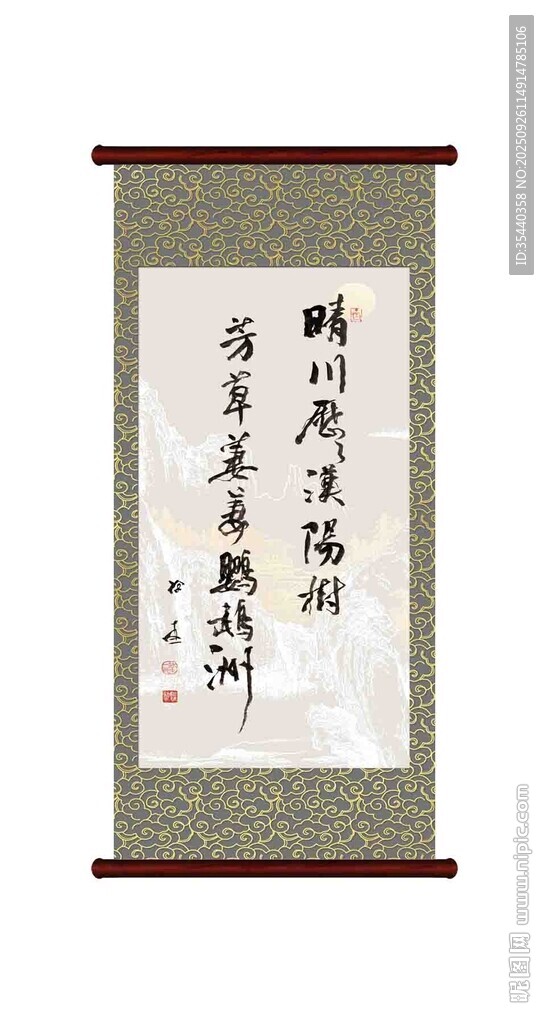 晴川歷々漢陽樹
芳草萋萋鸚鵡洲
ID:35440358 NO:20250926114914785106
昵图网 www.nipic.com